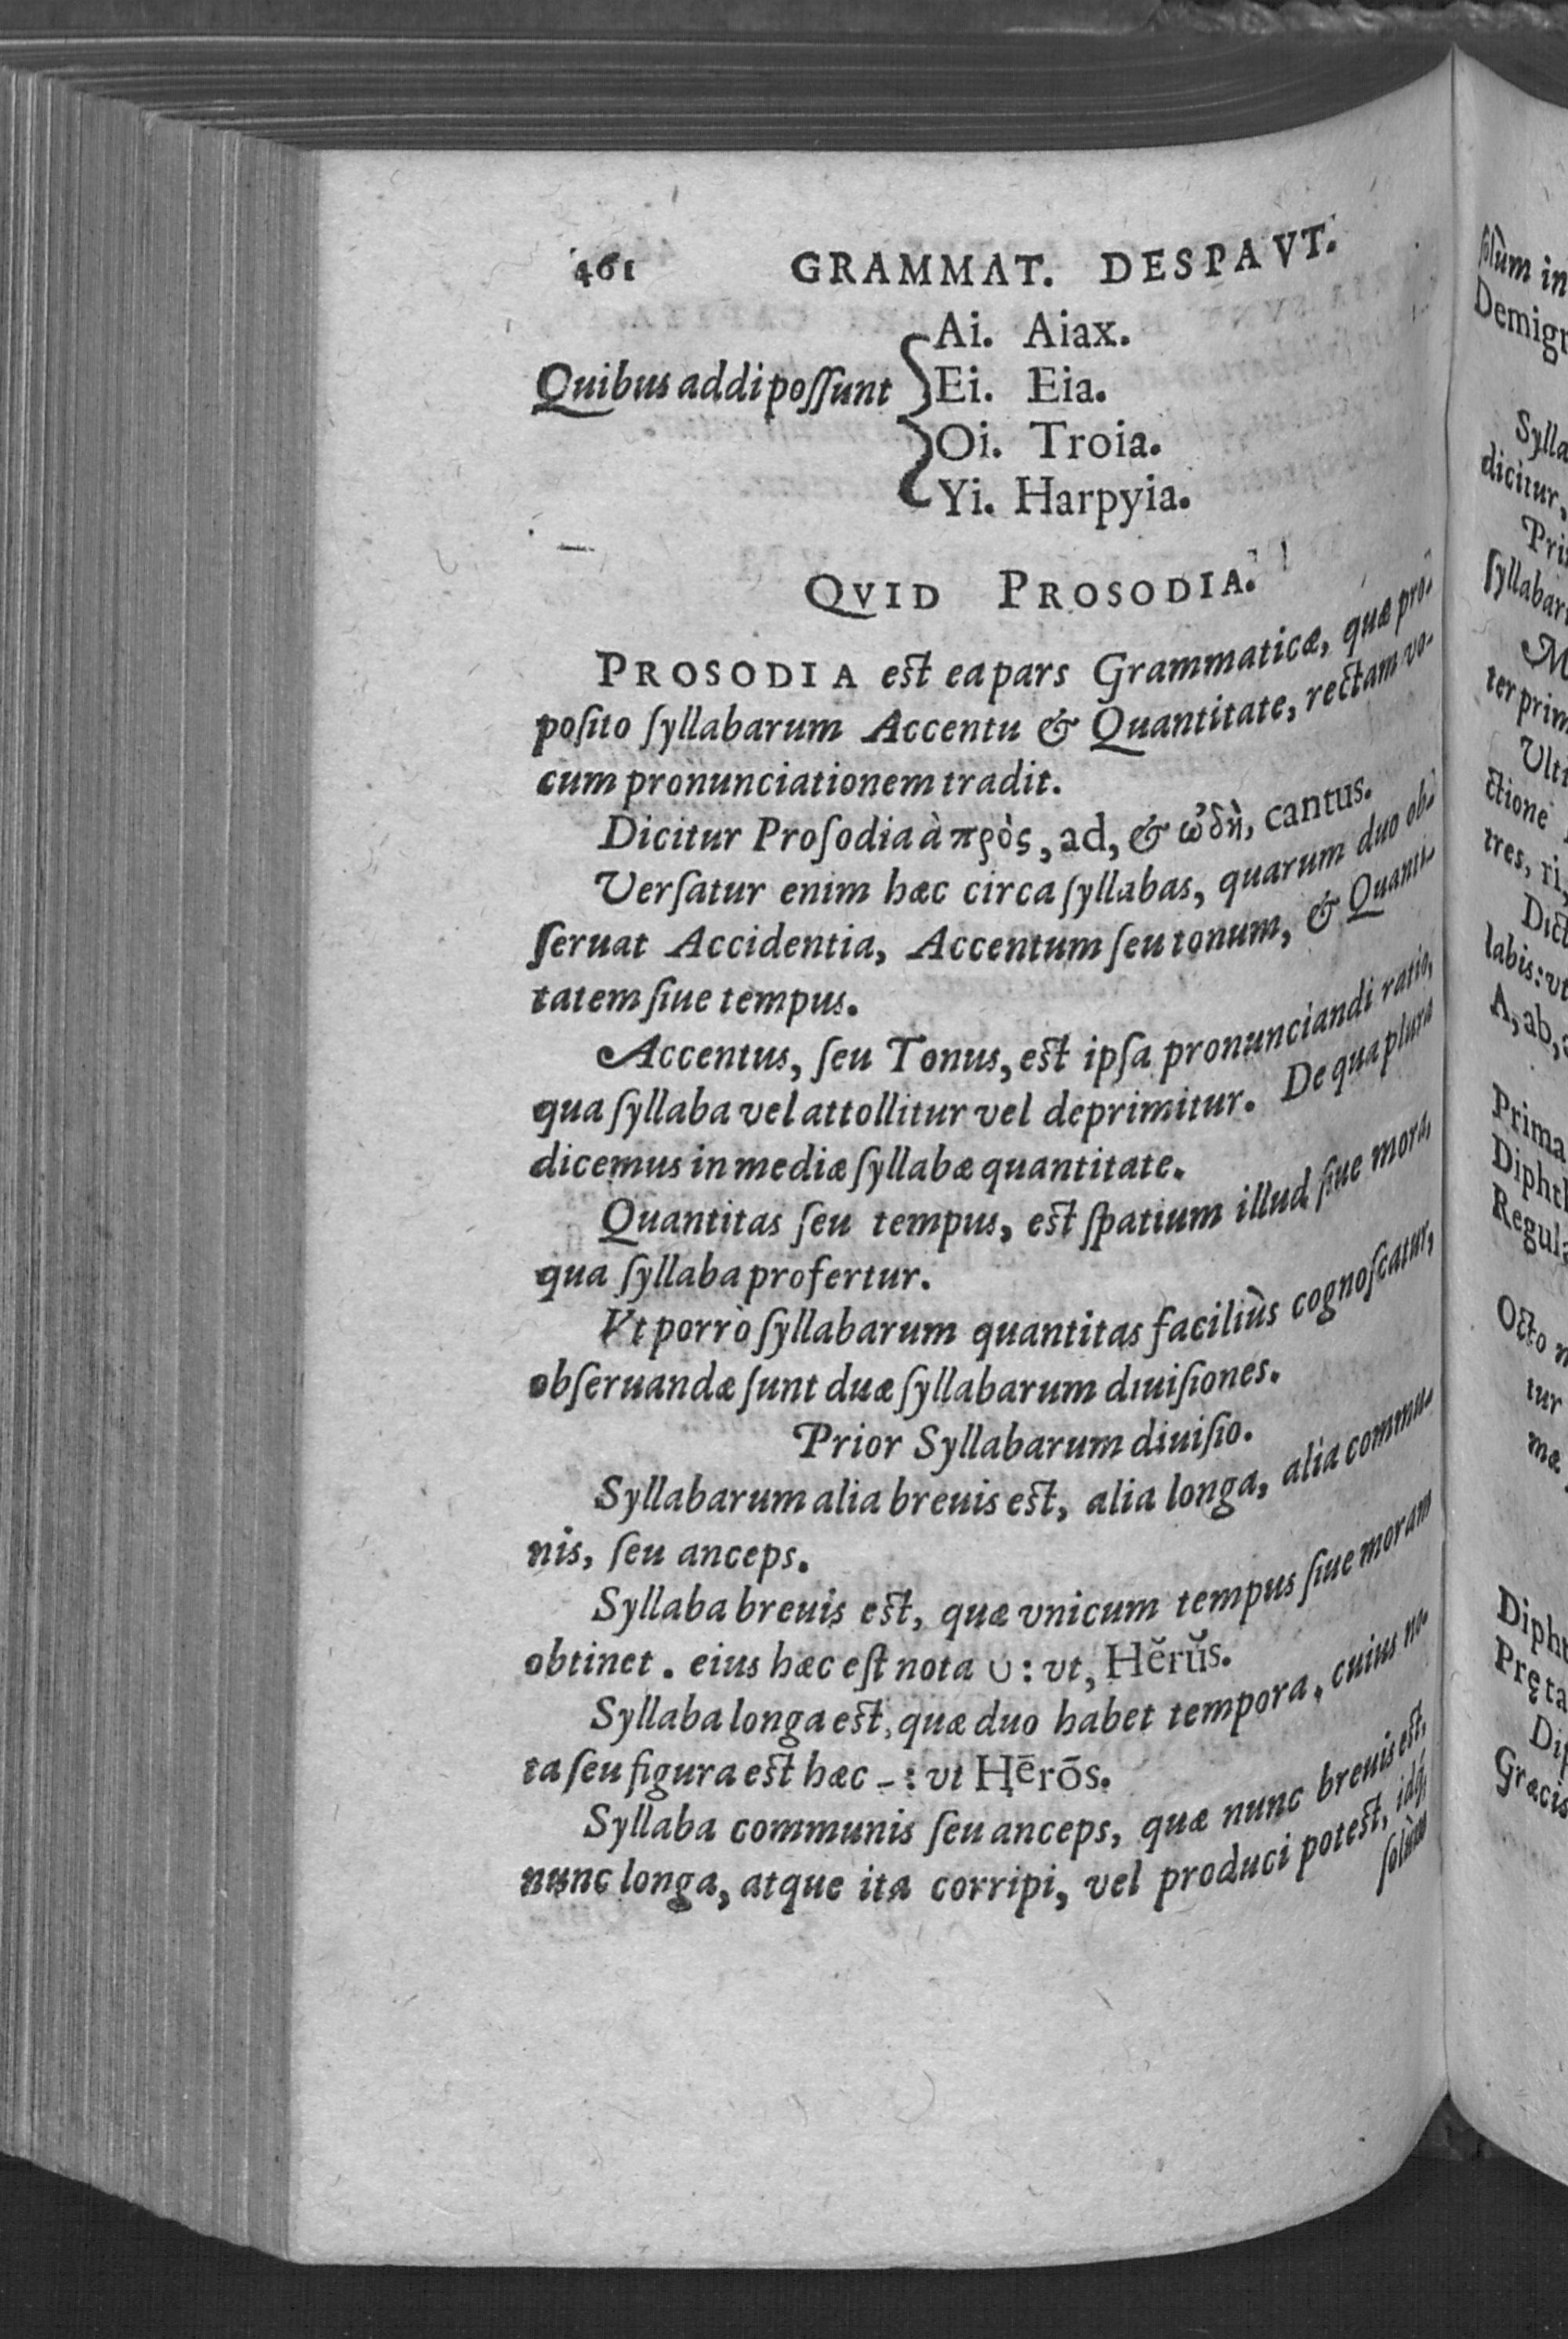 461 GRAMMAT. DESPAVT.
Ai. Aiax.
Quibus addi poſſunt Ei. Eia.
Oi. Troia.
Yi. Harpyia.
QVID PROSODIA.
PROSODIA est ea pars Grammaticæ, quæ pro-
poſito ſyllabarum Accentu & Quantitate, rectam vo-
cum pronunciationem tradit.
Dicitur Proſodia à πρὸς, ad, & ᾠδὴ, cantus.
Verſatur enim hæc circa ſyllabas, quarum duo ob-
ſeruat Accidentia, Accentum ſeu tonum, & Quanti-
tatem ſiue tempus.
Accentus, ſeu Tonus, est ipſa pronunciandi ratio,
qua ſyllaba vel attollitur vel deprimitur. De qua plura
dicemus in mediæ ſyllabæ quantitate.
Quantitas ſeu tempus, est ſpatium illud ſiue mora,
qua ſyllaba profertur.
Vt porrò ſyllabarum quantitas faciliùs cognoſcatur,
obſeruandæ ſunt duæ ſyllabarum diuiſiones.
Prior Syllabarum diuiſio.
Syllabarum alia breuis est, alia longa, alia commu-
nis, ſeu anceps.
Syllaba breuis est, quæ vnicum tempus ſiue moram
obtinet. eius hæc eſt nota ∪: vt, Hĕrŭs.
Syllaba longa est, quæ duo habet tempora, cuius no-
ta ſeu figura est hæc -: vt Hērōs.
Syllaba communis ſeu anceps, quæ nunc breuis est,
nunc longa, atque ita corripi, vel produci potest, idq́;
ſolùm
ſolùm in
Demigr
Sylla
dicitur,
Pri
ſyllabar
M
ter prim
Ulti
ctione
tres, ri,
Dict
labis: vt
A, ab,
Prima
Dipht
Regula
Octo n
tur
mæ
Diph
Pręta
Dip
Græcis